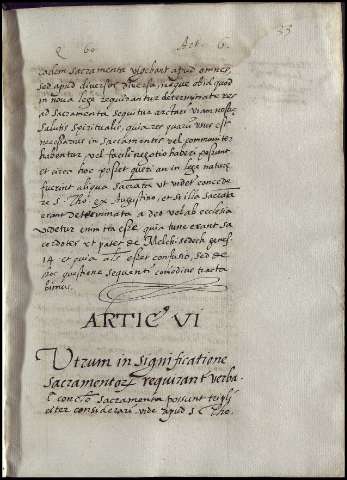 Q 60 Art. 6. 33
eadem sacramenta vigebant apud omnes,
sed apud diversos diversa, neque ob id quod
in nova lege requirantur determinatae res
ad sacramenta sequitur arctari viam
salutis spiritualis, quia res quarum usus est
necessarius in sacramentis vel communiter
habentur vel facili negotio haberi possunt
et circa hoc posset quaeri an in lege naturae
fuerint aliqua sacrata ut videt concede
re s. Tho. ex Augustino, et si illa sacrata
erant determinata a deo vel ab ecclesia
videtur enim ita esse quia tunc erant sa
cerdotes ut patet de Melchisedech genes.
14 et quia als esset confusio, sed de
hoc quaestione sequenti comodius tracta
bimus.
ARTICS VI
Utrum in significatione
sacramentor requirant verba.
concło sacramenta possunt tripli
citer considerari vide apud s Tho.